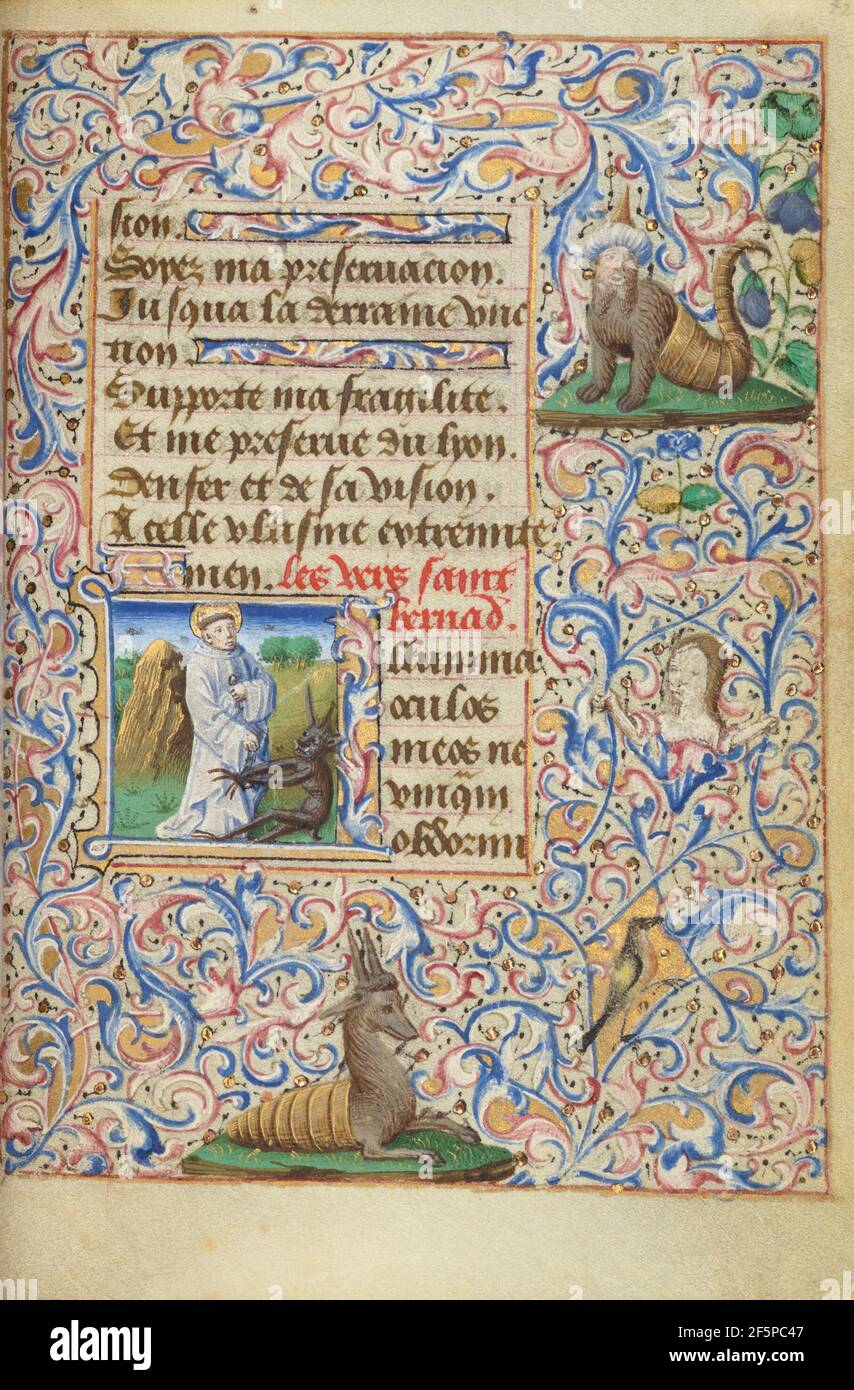 sion.
Soyez ma preseruacion.
Jusqua la derraine vnc
tion.
Supporte ma fragilite.
Et me preserue du lyon.
Denfer et de sa vision.
A celle vltisme extremite
Amen. Les vers saint
bernad.
Illumina
oculos
meos ne
vnq̄m
obdormi
alamy
Image ID: 2F5PC47
www.alamy.com